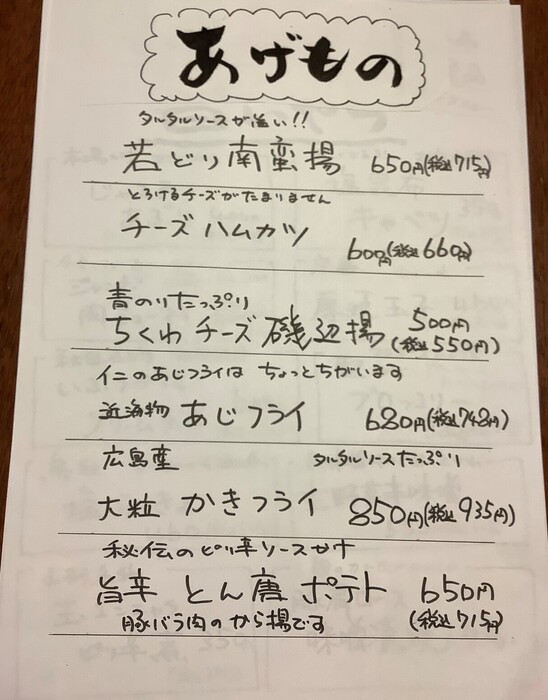 あげもの
タルタルソースが旨い!!
若どり南蛮揚 650円(税込715円)
とろけるチーズがたまりません
チーズハムカツ
600円(税込660円)
青のりたっぷり
ちくわチーズ磯辺揚 500円
(税込550円)
イニのあじフライは ちょっとちがいます
近海物 あじフライ 680円(税込748円)
広島産 タルタルソースたっぷり
大粒 かきフライ 850円(税込935円)
秘伝のピリ辛ソースかけ
旨辛 とん唐 ポテト 650円
豚バラ肉のから揚です (税込715円)